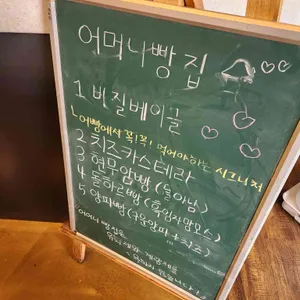 어머니빵집
1 바질베이글
ㄴ어빵에서 꼭!꼭! 먹어야하는 시그니처
2 치즈카스테라
3 현무암빵 (돌아님)
4 돌하르빵
5 양파빵 (구운양파 + 치즈)
어머니 빵집은